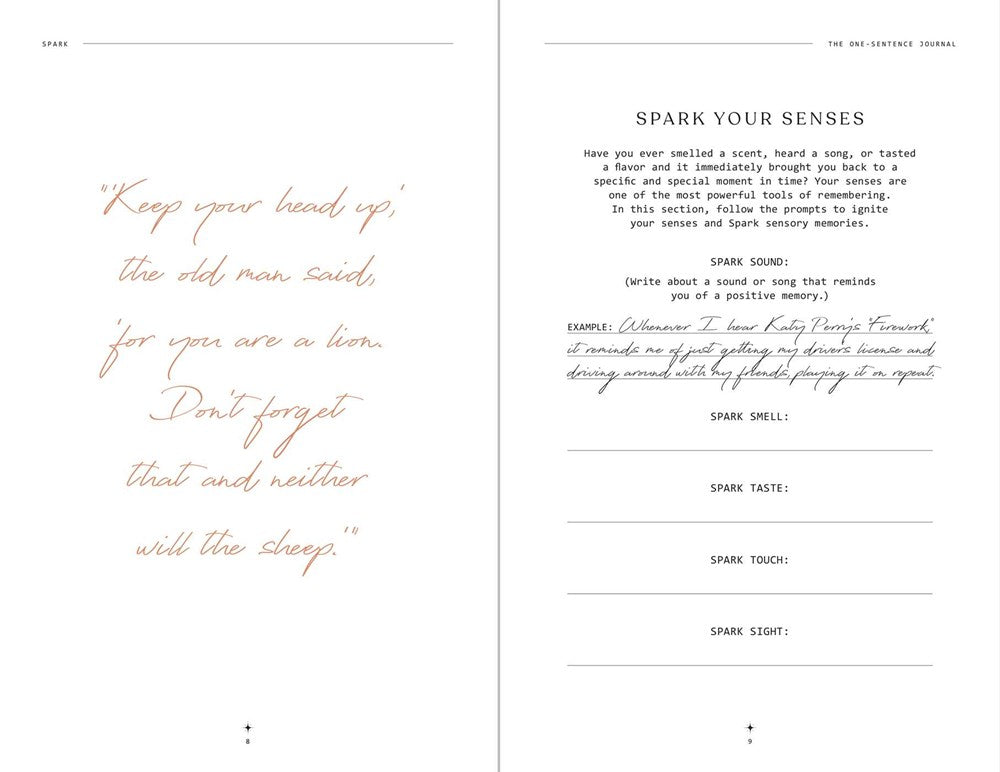 SPARK
"'Keep your head up,'
the old man said,
'for you are a lion.
Don't forget
that and neither
will the sheep.'"
8
THE ONE-SENTENCE JOURNAL
SPARK YOUR SENSES
Have you ever smelled a scent, heard a song, or tasted
a flavor and it immediately brought you back to a
specific and special moment in time? Your senses are
one of the most powerful tools of remembering.
In this section, follow the prompts to ignite
your senses and Spark sensory memories.
SPARK SOUND:
(Write about a sound or song that reminds
you of a positive memory.)
EXAMPLE: Whenever I hear Katy Perry's "Firework,"
it reminds me of just getting my driver's license and
driving around with my friends, playing it on repeat.
SPARK SMELL:
SPARK TASTE:
SPARK TOUCH:
SPARK SIGHT:
9